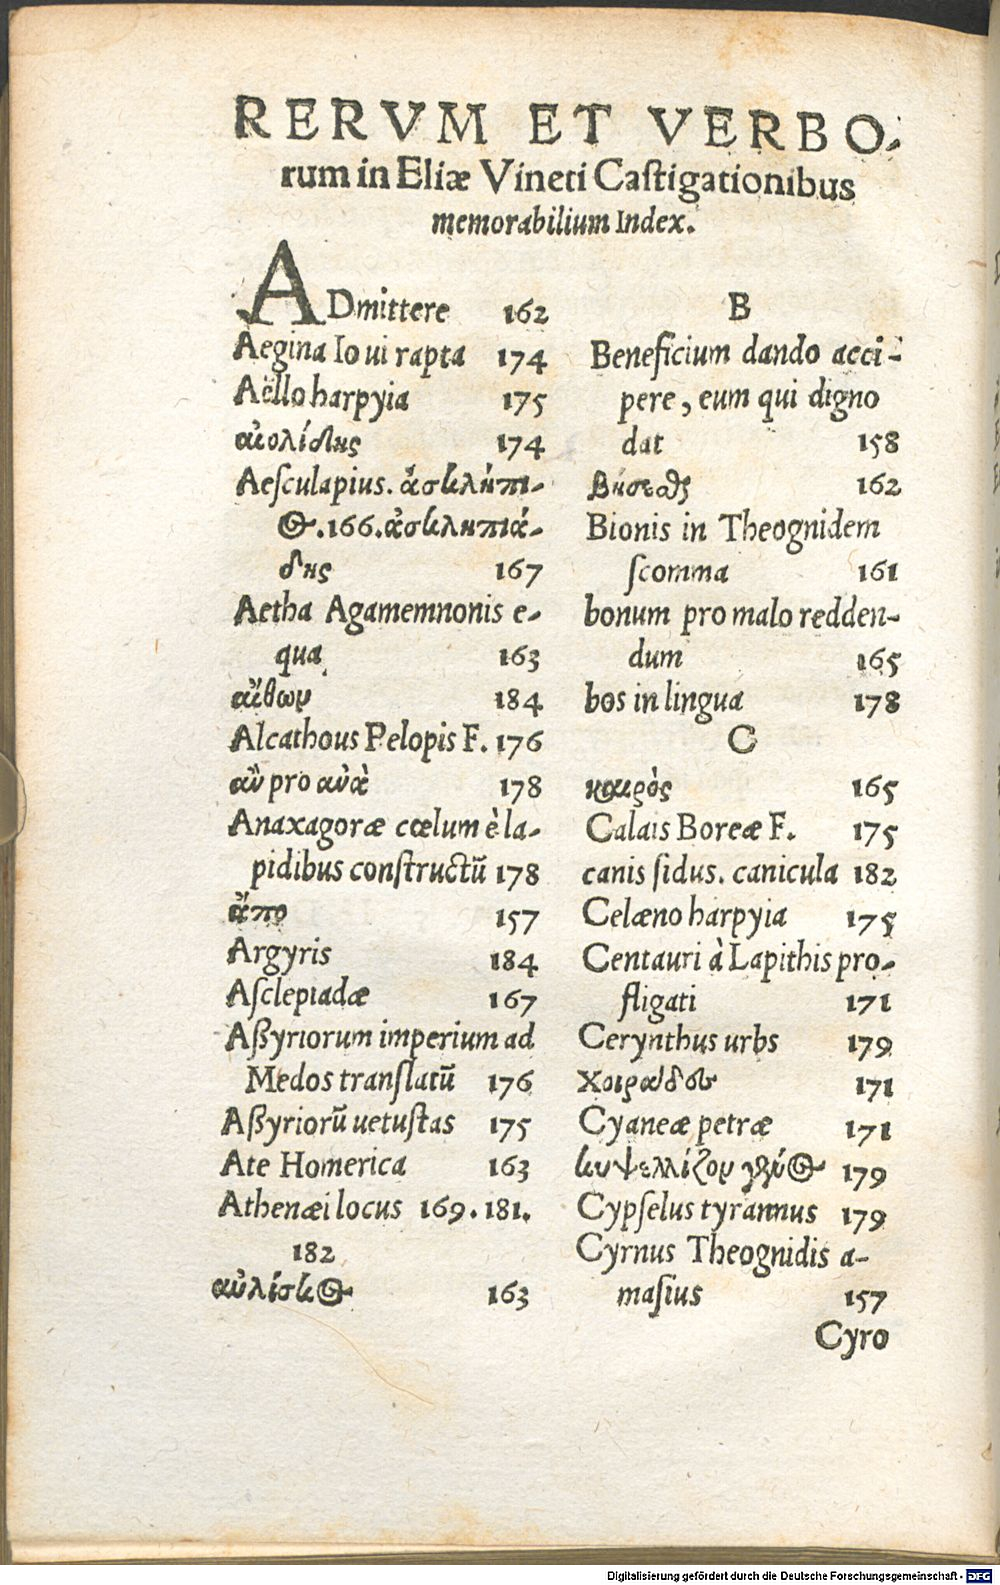 RERVM ET VERBO-
rum in Eliæ Vineti Caſtigationibus
memorabilium Index.
ADmittere 162
Aegina Ioui rapta 174
Aëllo harpyia 175
αἰολίδης 174
Aeſculapius. ἀσκλήπι-
ος. 166. ἀσκληπιά-
δης 167
Aetha Agamemnonis e-
qua 163
αἴθων 184
Alcathous Pelopis F. 176
αὖ pro αὐὰ 178
Anaxagoræ cœlum è la-
pidibus conſtructũ 178
ἄπο 157
Argyris 184
Aſclepiadæ 167
Aßyriorum imperium ad
Medos translatũ 176
Aßyriorũ uetuſtas 175
Ate Homerica 163
Athenæi locus 169. 181.
182
αὐλίσκος 163
B
Beneficium dando acci-
pere, eum qui digno
dat 158
162
Bionis in Theognidem
ſcomma 161
bonum pro malo redden-
dum 165
bos in lingua 178
C
καιρὸς 165
Calais Boreæ F. 175
canis ſidus. canicula 182
Celæno harpyia 175
Centauri à Lapithis pro-
fligati 171
Cerynthus urbs 179
171
Cyaneæ petræ 171
κυψελλίζον 179
Cypſelus tyrannus 179
Cyrnus Theognidis a-
maſius 157
Cyro
Digitalisierung gefördert durch die Deutsche Forschungsgemeinschaft - DFG